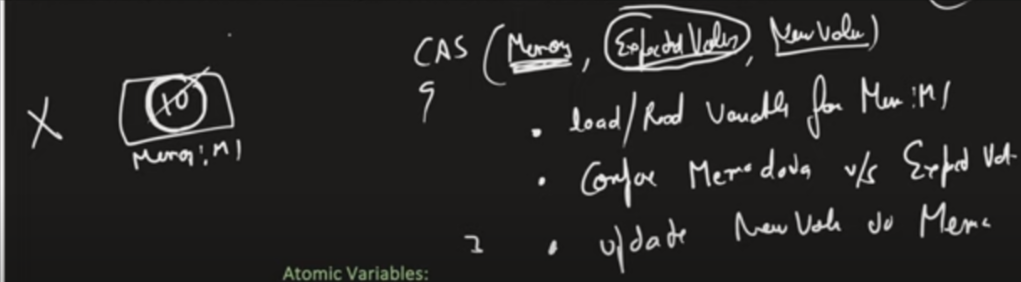 CAS (Memory, Expected Value, New Value)
{
X
10
Memory: M1
• load/Read Variable from Mem: M1
• Compare Memo data v/s Expected Val.
} • update New Valu to Mem
Atomic Variables: